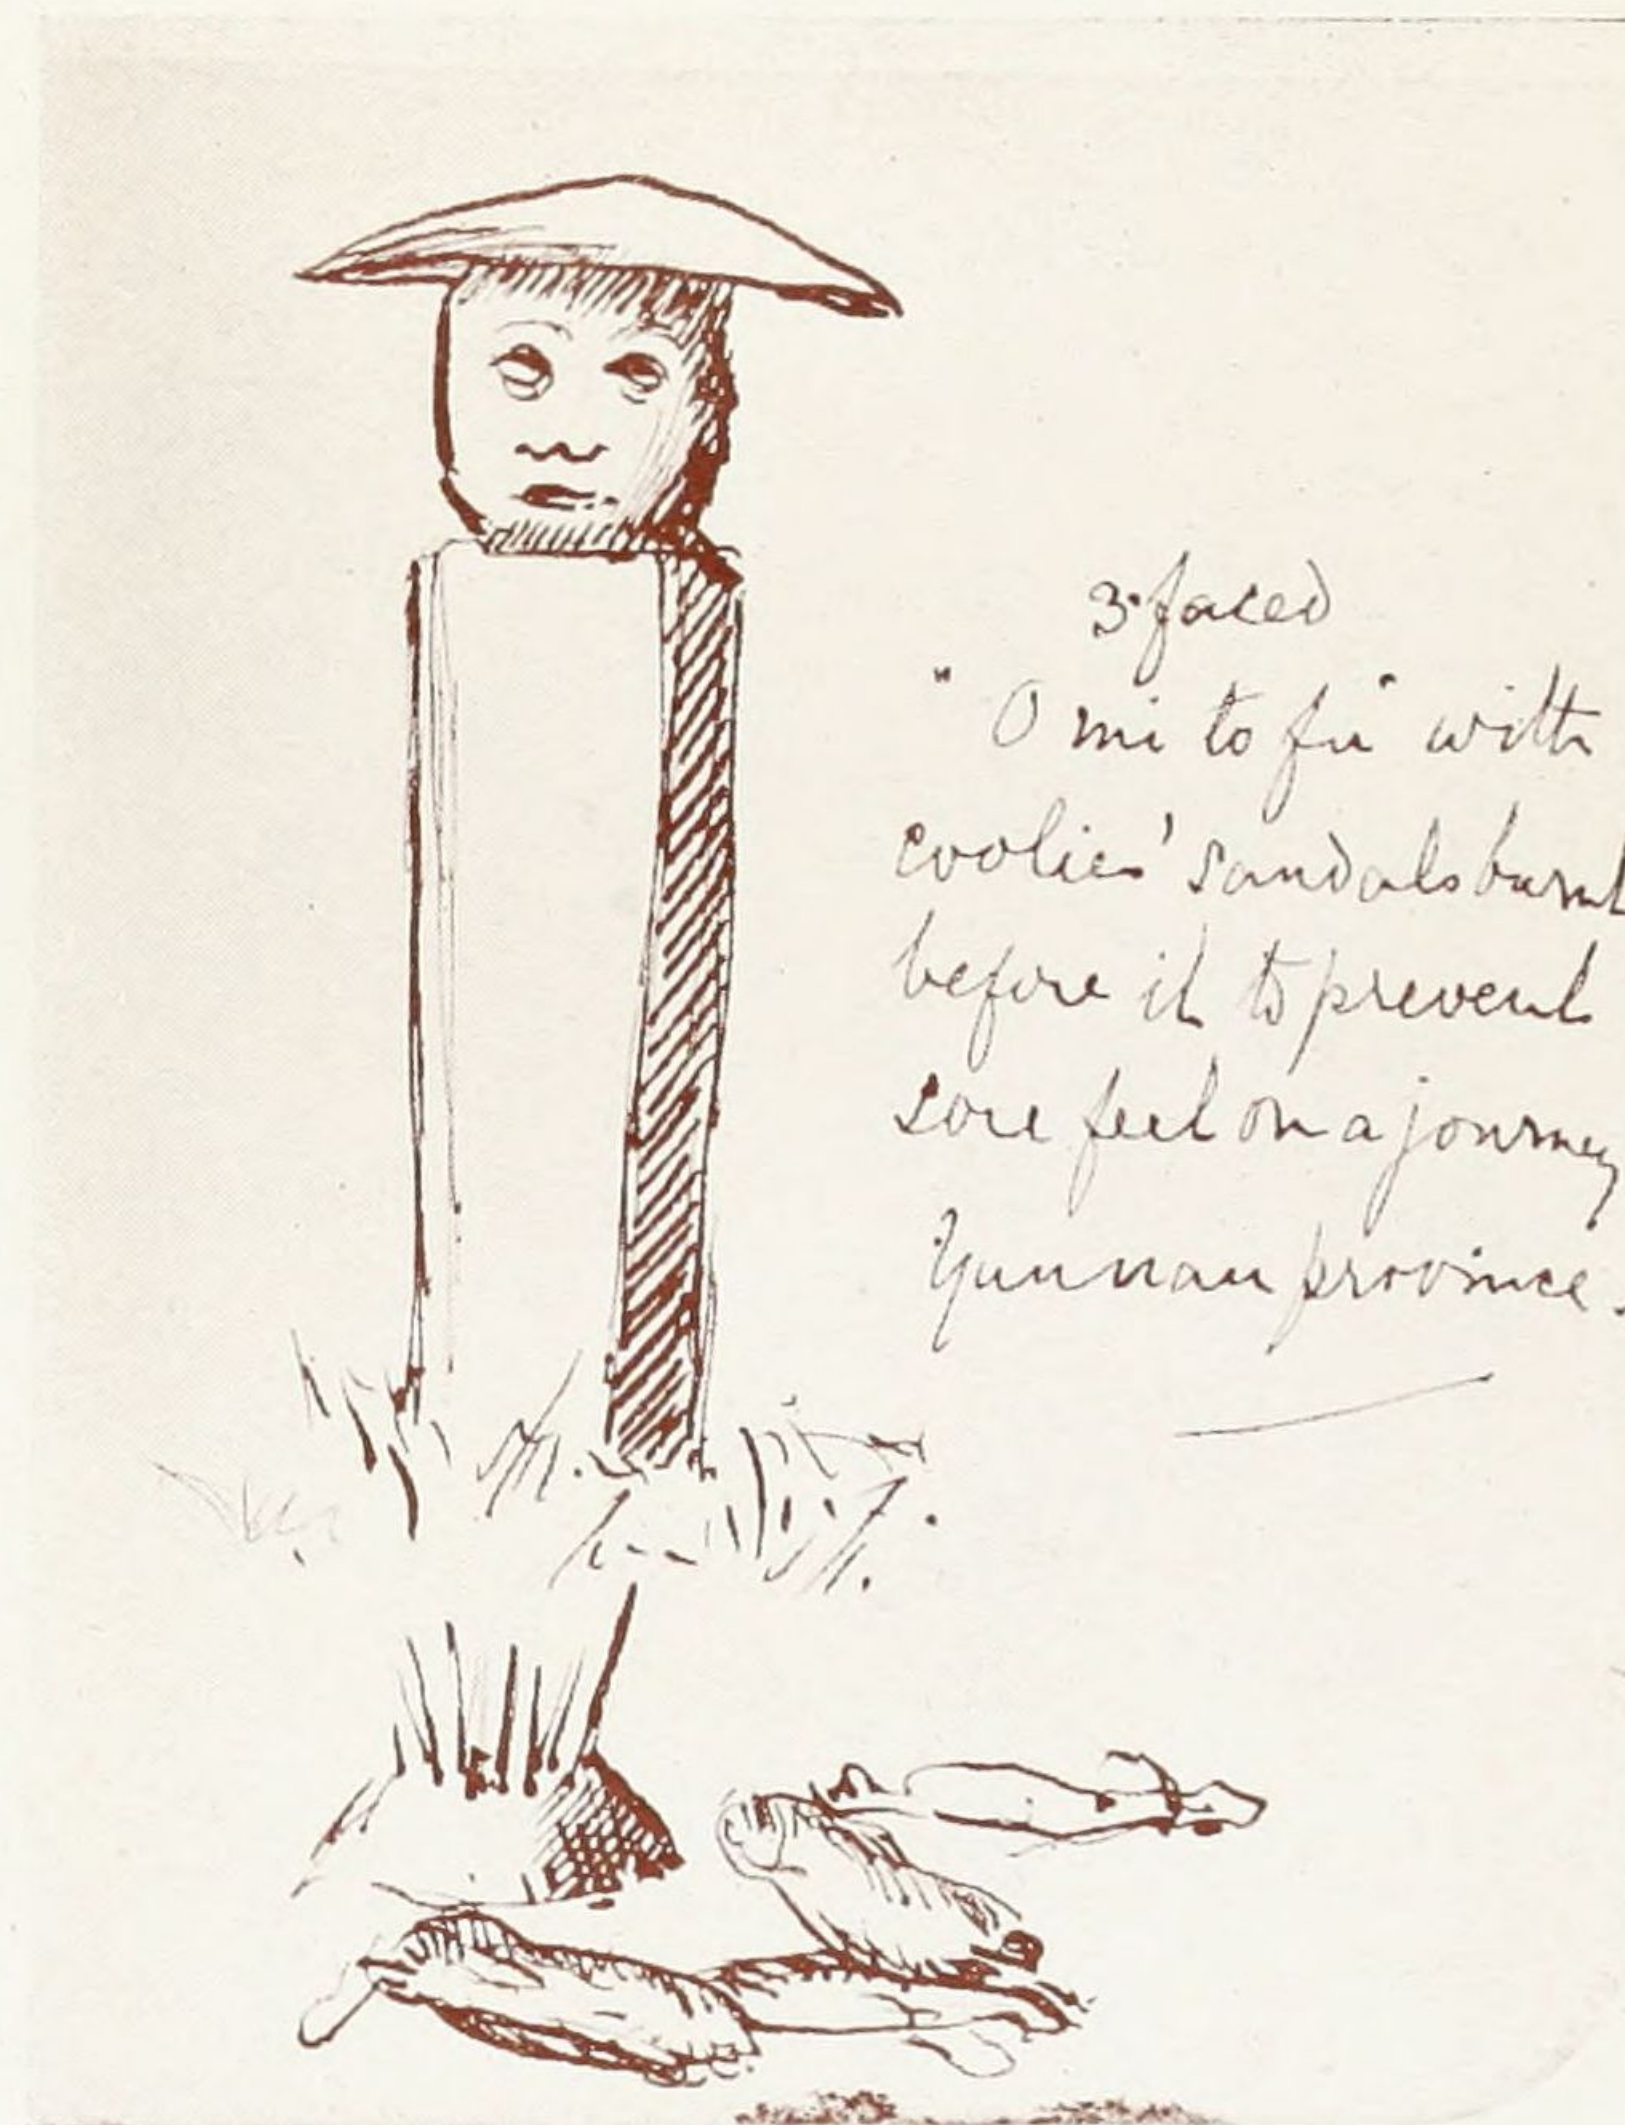 3 faced
"O mi to fu" with
coolies' sandals burnt
before it to prevent
sore feet on a journey
Yunnan province.